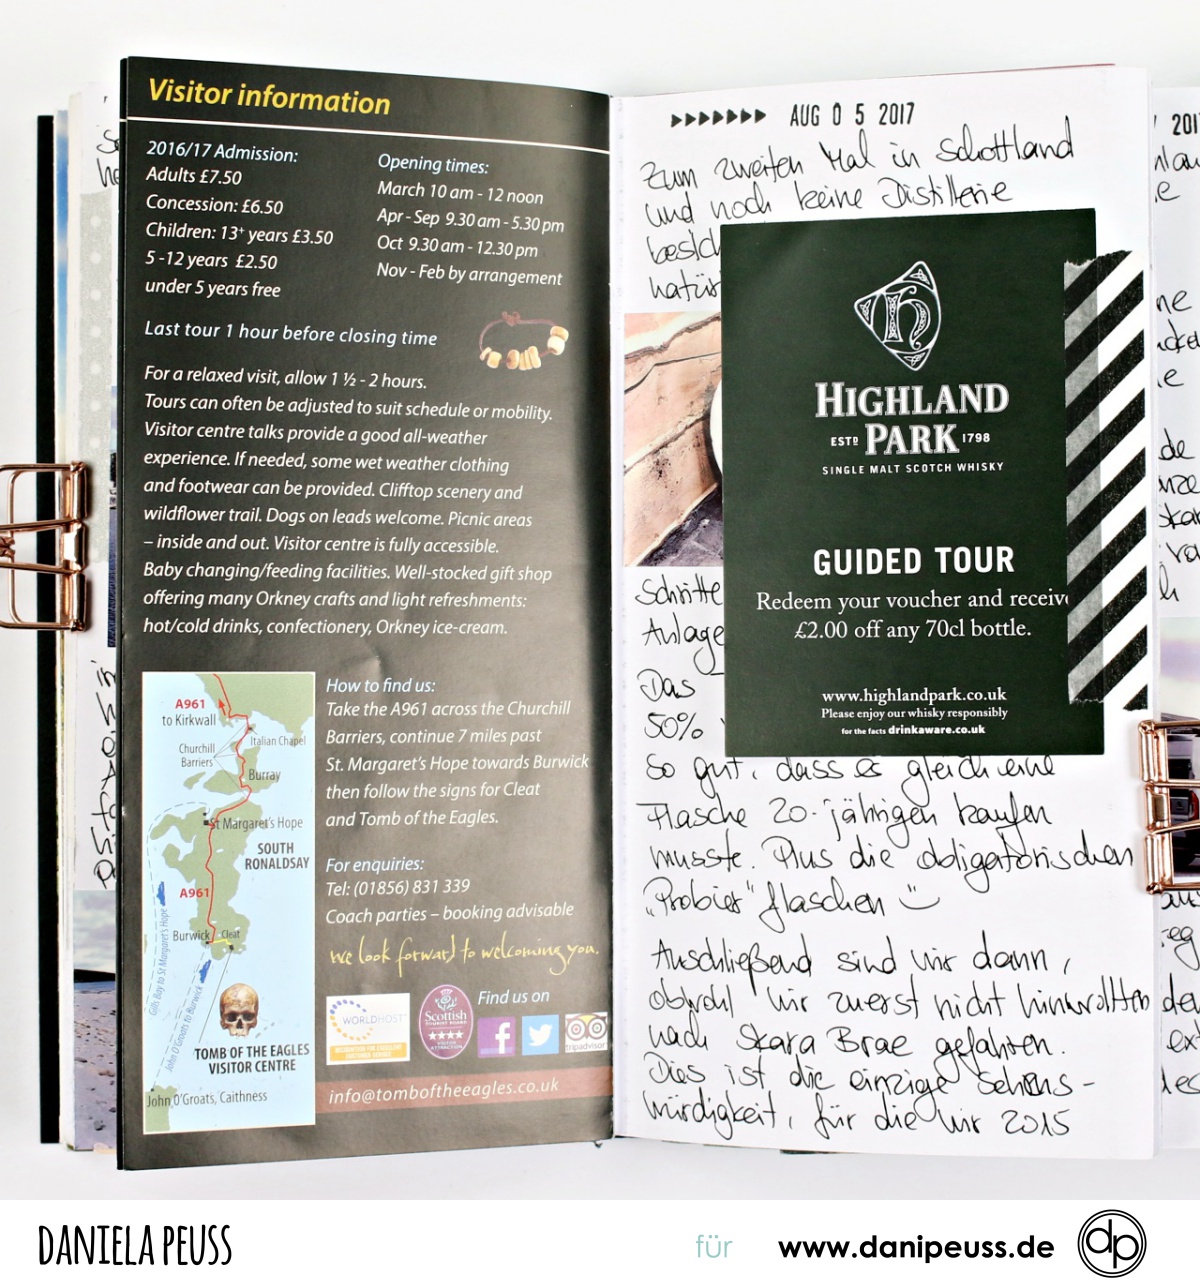 Visitor information
2016/17 Admission:
Adults £7.50
Concession: £6.50
Children: 13+ years £3.50
5 -12 years £2.50
under 5 years free
Opening times:
March 10 am - 12 noon
Apr - Sep 9.30 am - 5.30 pm
Oct 9.30 am - 12.30 pm
Nov - Feb by arrangement
Last tour 1 hour before closing time
For a relaxed visit, allow 1 ½ - 2 hours.
Tours can often be adjusted to suit schedule or mobility.
Visitor centre talks provide a good all-weather
experience. If needed, some wet weather clothing
and footwear can be provided. Clifftop scenery and
wildflower trail. Dogs on leads welcome. Picnic areas
– inside and out. Visitor centre is fully accessible.
Baby changing/feeding facilities. Well-stocked gift shop
offering many Orkney crafts and light refreshments:
hot/cold drinks, confectionery, Orkney ice-cream.
A961
to Kirkwall
Italian Chapel
Churchill
Barriers
Burray
St Margaret's Hope
SOUTH
RONALDSAY
A961
Burwick
Cleat
Gills Bay to St Margaret's Hope
John O'Groats to Burwick
TOMB OF THE EAGLES
VISITOR CENTRE
John O'Groats, Caithness
How to find us:
Take the A961 across the Churchill
Barriers, continue 7 miles past
St. Margaret's Hope towards Burwick
then follow the signs for Cleat
and Tomb of the Eagles.
For enquiries:
Tel: (01856) 831 339
Coach parties – booking advisable
we look forward to welcoming you.
Find us on
WORLDHOST
RECOGNITION FOR EXCELLENT
CUSTOMER SERVICE
Scottish
TOURIST BOARD
VISITOR
ATTRACTION
tripadvisor
info@tomboftheeagles.co.uk
AUG 05 2017
Zum zweiten Mal in Schottland
und noch keine Distillerie
HIGHLAND
ESTD PARK 1798
SINGLE MALT SCOTCH WHISKY
GUIDED TOUR
Redeem your voucher and receive
£2.00 off any 70cl bottle.
www.highlandpark.co.uk
Please enjoy our whisky responsibly
for the facts drinkaware.co.uk
Schritte
Anlage
Das
50%
so gut, dass es gleich eine
Flasche 20-jährigen kaufen
musste. Plus die obligatorischen
„Probier" flaschen
Anschließend sind wir dann,
obwohl wir zuerst nicht hinwollten
nach Skara Brae gefahren.
Dies ist die einzige Sehens-
würdigkeit, für die wir 2015
DANIELA PEUSS
für www.danipeuss.de
dp